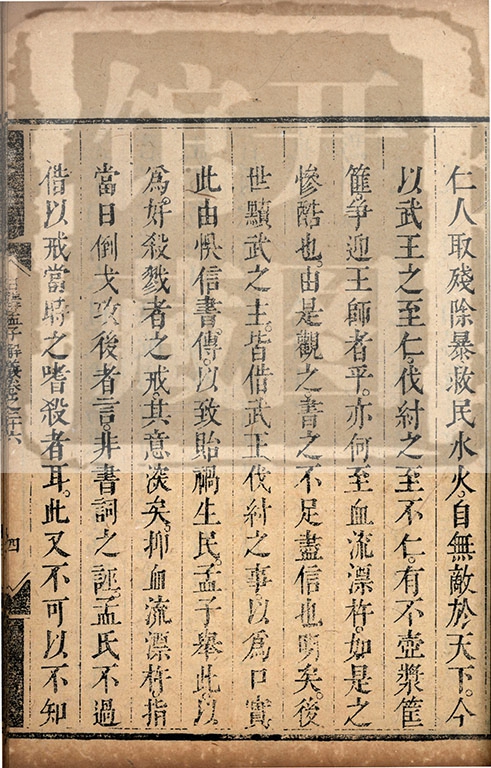 仁人取殘除暴。救民水火。自無敵於天下。今
以武王之至仁。伐紂之至不仁。有不壺漿筐
篚。爭迎王師者乎。亦何至血流漂杵。如是之
慘酷也。由是觀之。書之不足盡信也明矣。後
世黷武之主。皆借武王伐紂之事以爲口實
此由悞信書。傳。以致貽禍生民。孟子舉此。以
爲。好殺戮者之戒。其意深矣。抑血流漂杵。指
當日倒戈攻後者言。非書詞之誣。孟氏不過
借以戒當時之嗜殺者耳。此又不可以不知
日講孟子解義卷之二十六
四